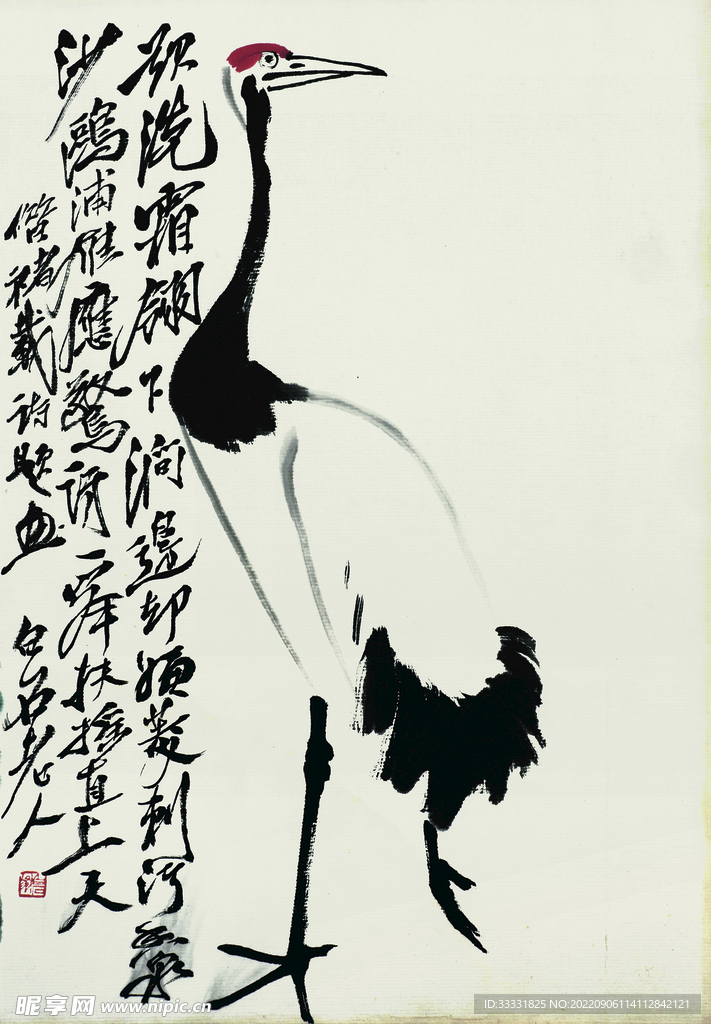 欲洗霜翎下澗邊却嫌菱刺污香泉
沙鷗浦雁應驚訝一舉扶搖直上天
借褚載詩題畫 白石老人
昵享网 www.nipic.cn
ID:33331825 NO:20220906114112842121